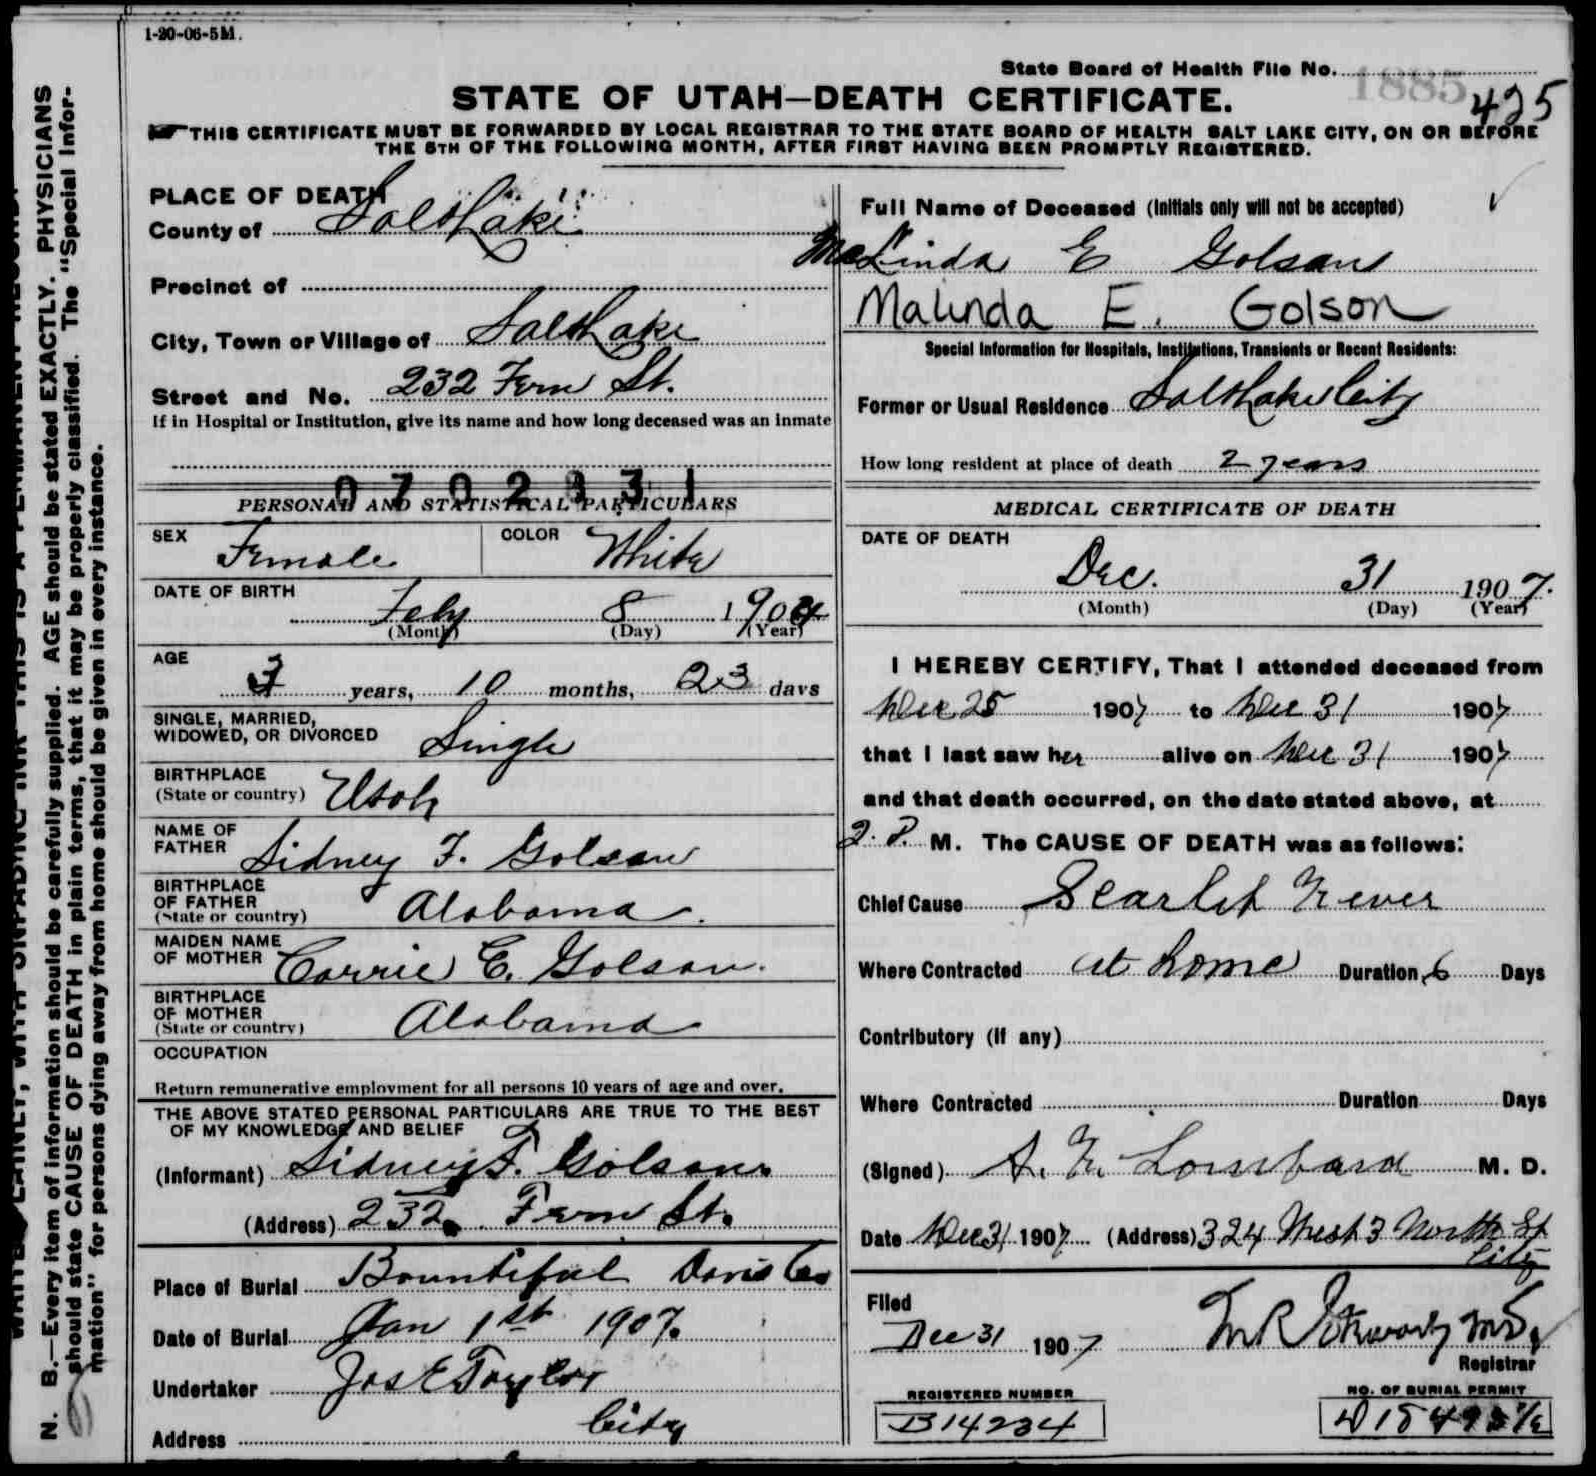 1-20-06-5M.
State Board of Health File No. 1885 425
STATE OF UTAH—DEATH CERTIFICATE.
THIS CERTIFICATE MUST BE FORWARDED BY LOCAL REGISTRAR TO THE STATE BOARD OF HEALTH SALT LAKE CITY, ON OR BEFORE
THE 5TH OF THE FOLLOWING MONTH, AFTER FIRST HAVING BEEN PROMPTLY REGISTERED.
N. B.—Every item of information should be carefully supplied. AGE should be stated EXACTLY. PHYSICIANS
should state CAUSE OF DEATH in plain terms, that it may be properly classified. The "Special Infor-
mation" for persons dying away from home should be given in every instance.
PLACE OF DEATH
County of Salt Lake
Precinct of
City, Town or Village of Salt Lake
Street and No. 232 Fern St.
If in Hospital or Institution, give its name and how long deceased was an inmate
PERSONAL AND STATISTICAL PARTICULARS
SEX Female COLOR White
DATE OF BIRTH Feby 8 1904
(Month) (Day) (Year)
AGE 3 years, 10 months, 23 days
SINGLE, MARRIED,
WIDOWED, OR DIVORCED Single
BIRTHPLACE
(State or country) Utah
NAME OF
FATHER Sidney F. Golson
BIRTHPLACE
OF FATHER
(State or country) Alabama.
MAIDEN NAME
OF MOTHER Carrie C. Golson.
BIRTHPLACE
OF MOTHER
(State or country) Alabama
OCCUPATION
Return remunerative employment for all persons 10 years of age and over.
THE ABOVE STATED PERSONAL PARTICULARS ARE TRUE TO THE BEST
OF MY KNOWLEDGE AND BELIEF
(Informant) Sidney F. Golson.
(Address) 232 Fern St.
Place of Burial Bountiful Davis Co
Date of Burial Jan 1st 1907.
Undertaker Jos E Taylor
Address City
Full Name of Deceased (Initials only will not be accepted)
Linda E Golson
Malinda E. Golson
Special Information for Hospitals, Institutions, Transients or Recent Residents:
Former or Usual Residence Salt Lake City
How long resident at place of death 2 years
MEDICAL CERTIFICATE OF DEATH
DATE OF DEATH
Dec. 31 1907.
(Month) (Day) (Year)
I HEREBY CERTIFY, That I attended deceased from
Dec 25 1907 to Dec 31 1907
that I last saw her alive on Dec 31 1907
and that death occurred, on the date stated above, at
2. P. M. The CAUSE OF DEATH was as follows:
Chief Cause Scarlet Fever
Where Contracted at home Duration 6 Days
Contributory (If any)
Where Contracted Duration Days
(Signed) Lombard M. D.
Date Dec 31 1907 (Address) 324 West 3 North St
City
Filed
Dec 31 1907
Registrar
REGISTERED NUMBER
B14234
NO. OF BURIAL PERMIT